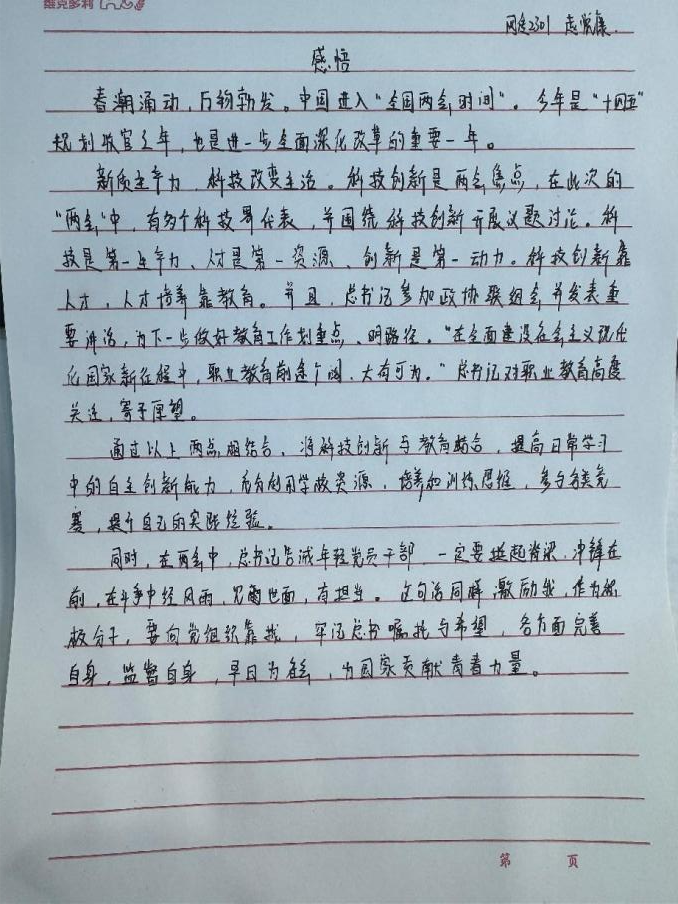 维克多利
网安2301 赵悦康
感悟
春潮涌动，万物勃发。中国进入“全国两会时间”。今年是“十四五”
规划收官之年，也是进一步全面深化改革的重要一年。
新质生产力，科技改变生活。科技创新是两会焦点，在此次的
“两会”中，有多个科技界代表，并围绕科技创新开展议题讨论。科
技是第一生产力、人才是第一资源、创新是第一动力。科技创新靠
人才，人才培养靠教育。并且，总书记参加政协联组会并发表重
要讲话，为下一步做好教育工作划重点、明路径。“在全面建设社会主义现代
化国家新征程中，职业教育前途广阔、大有可为。”总书记对职业教育高度
关注，寄予厚望。
通过以上两点相结合，将科技创新与教育结合，提高日常学习
中的自主创新能力，充分利用学校资源，培养和训练思维，参与各类竞
赛，提升自己的实践经验。
同时，在两会中，总书记告诫年轻党员干部，一定要挺起脊梁，冲锋在
前，在斗争中经风雨、见世面，有担当。这句话同样激励我，作为积
极分子，要向党组织靠拢，牢记总书嘱托与希望，各方面完善
自身，监督自身，早日为社会，为国家贡献青春力量。
第 页